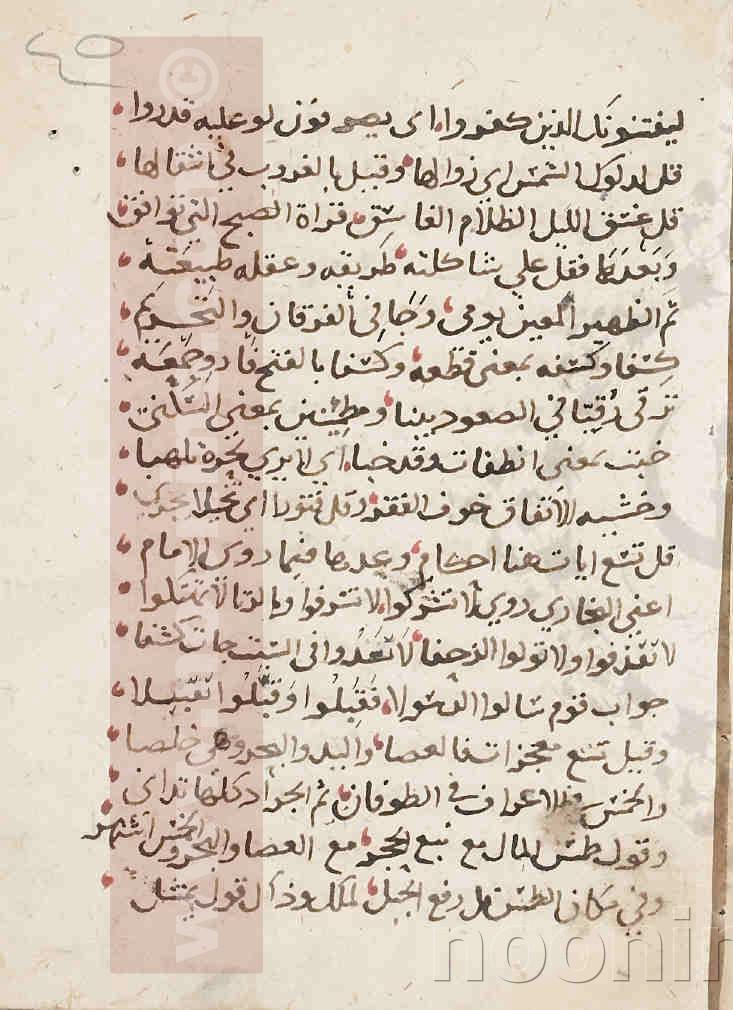 ليفتنونك الذين كفروا، اى يصرفون لو عليه قدروا،
قل لدلوك الشمس اى زوالها، وقيل بالغروب في انتقالها،
قل غسق الليل الظلام الغاسق، قراة الصبح التي توافق،
وبعدها فقل علي شاكلته، طريقه وعقله طبيعته،
ثم الظهير المعين يومى، وجا في الفرقان والتحريم،
كسفا وكسفه بمعنى قطعه، وكسفا بالفتح جمعه،
ترقى رقيا في الصعود بينا، ومطمئنين بمعنى السكنى،
خبت بمعنى انطفات وقد خبا، اى لا يرى بحرة تلهبا،
وخشيه الانفاق خوف الفقر، وقل قتورا اى بخيلا يجرى
قل تسع ايات هنا احكام، وعدها فيما روى الامام،
اعنى البخارى روى لا تشركوا، لا تسرفوا وبالربا لا
لا تقذفوا ولا تولوا الزحفا، لا تعدوا في السبت جات كشفا،
جواب قوم سالوا الرسولا، فقبلوا وقبلوا تقبيلا،
وقيل تسع معجزات فالعصا، واليد والبحر وهى خلصا
والخمس فى الاعراف في الطوفان، ثم الجراد كلها تدانى
وقول طمس المال مع نبع الحجر، مع العصا والبحر والخمس اشتهر
وفي مكان الطمس بل رفع الجبل، لكل وذا قول يمثل
www.noormags.com ©
noonin